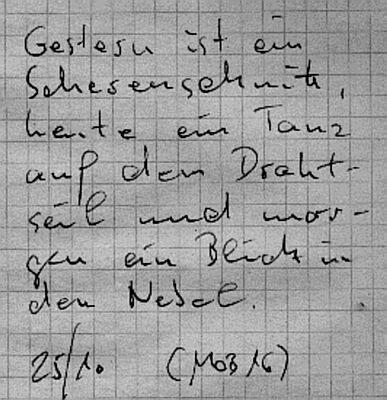 Gestern ist ein
Scherenschnitt,
heute ein Tanz
auf dem Draht-
seil und mor-
gen ein Blick in
den Nebel.
25/10 (MOB16)